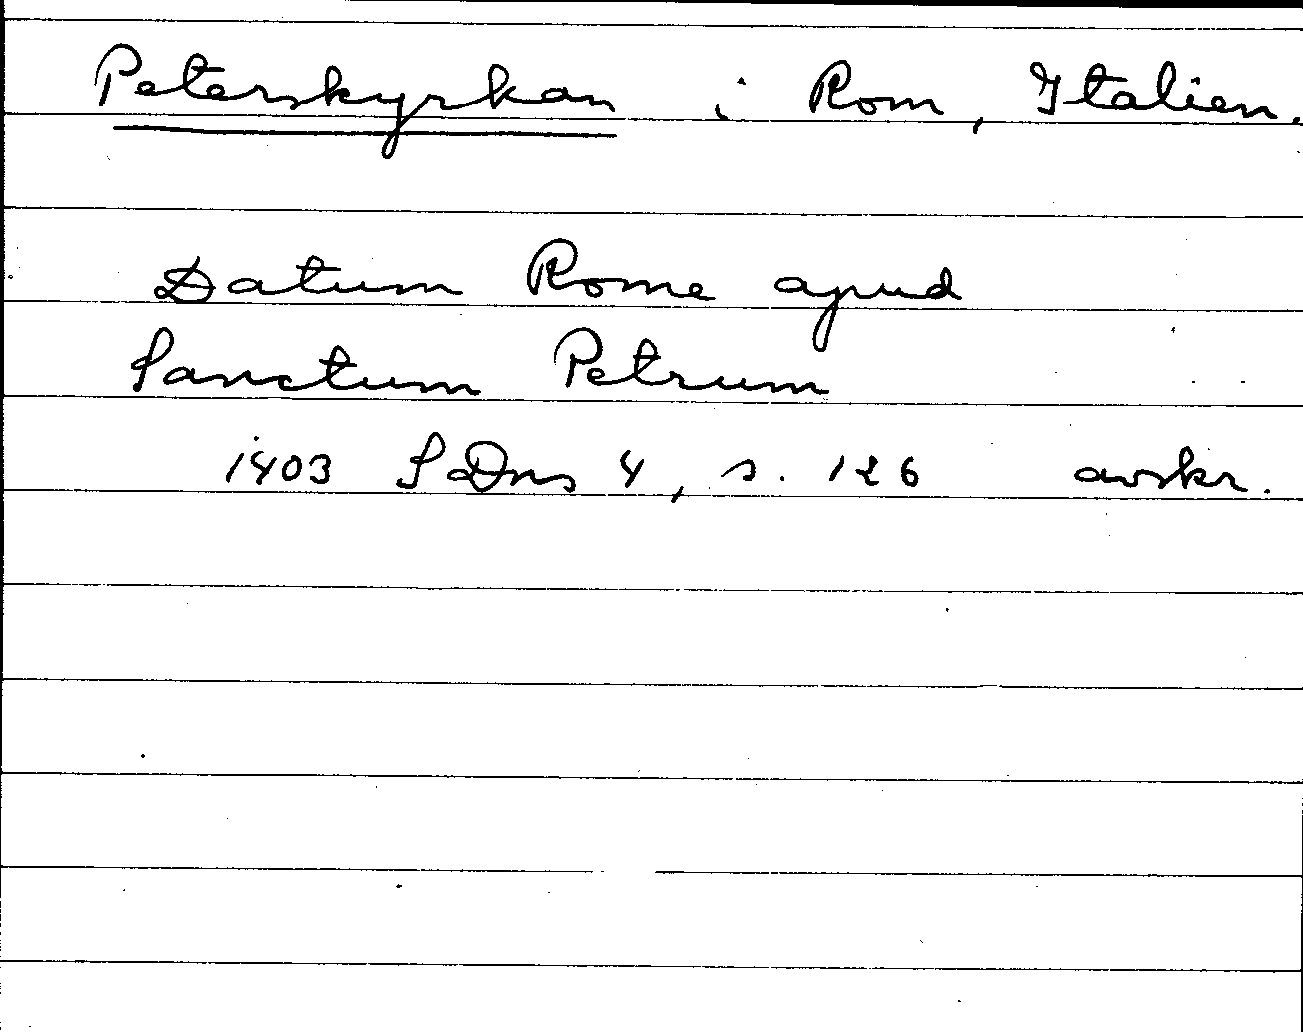 Peterskyrkan i Rom, Italien.
Datum Rome apud
Sanctum Petrum
1403 SDns 4, s. 126 avskr.